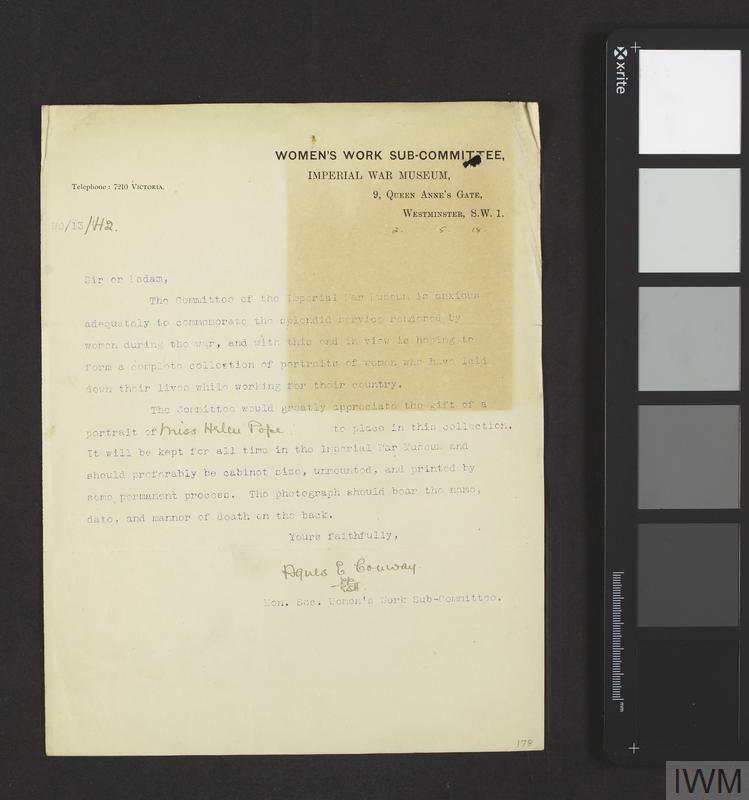 WOMEN'S WORK SUB-COMMITTEE,
IMPERIAL WAR MUSEUM,
9, QUEEN ANNE'S GATE,
WESTMINSTER, S.W. 1.
Telephone: 7210 VICTORIA.
2. 5 18.
/13/142.
Sir or Madam,
The Committee of the Imperial War Museum is anxious
adequately to commemorate the splendid service rendered by
women during the war, and with this end in view is hoping to
form a complete collection of portraits of women who have laid
down their lives while working for their country.
The Committee would greatly appreciate the gift of a
portrait of Miss Helen Pope to place in this collection.
It will be kept for all time in the Imperial War Museum and
should preferably be cabinet size, unmounted, and printed by
some permanent process. The photograph should bear the name,
date, and manner of death on the back.
Yours faithfully,
Agnes E Conway.
Hon. Sec. Women's Work Sub-Committee.
178
x-rite
mm
IWM